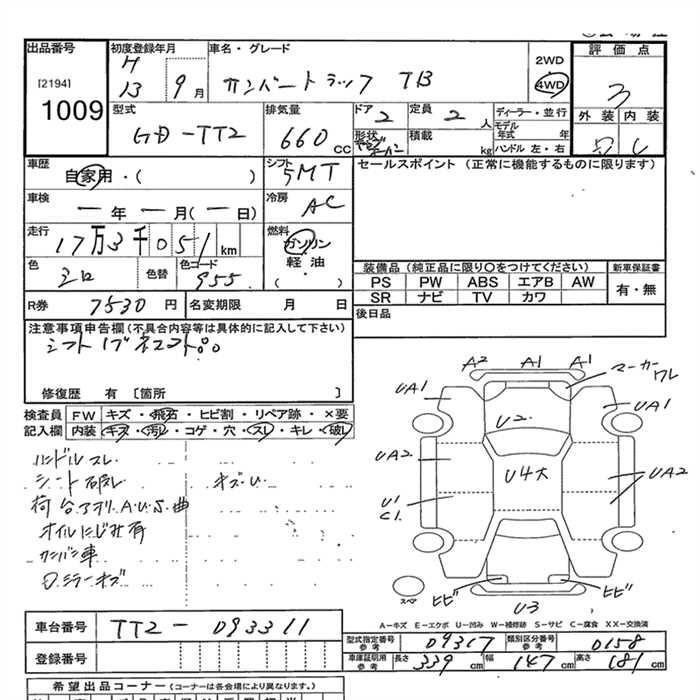 出品番号 初度登録年月 車名・グレード 2WD 評価点
[2194] H 13 9月 サンバートラック TB 4WD 3
1009 型式 排気量 ドア 2 定員 2人 ディーラー・並行 外装 内装
GD-TT2 660 CC 形状 積載 kg モデル年式 年 ハンドル 左・右
車歴 自家用・( ) シフト 5MT セールスポイント (正常に機能するものに限ります)
車検 一年一月(一日) 冷房 AC
走行 17万3千051km 燃料 ガソリン・軽油・( )
色 シロ 色替 色コード 955 装備品 (純正品に限り○をつけてください) 新車保証書
PS PW ABS エアB AW 有・無
R券 7530円 名変期限 月 日 SR ナビ TV カワ
注意事項申告欄(不具合内容等は具体的に記入して下さい) 後日品
修復歴 有 [箇所 ]
検査員 FW キズ・飛石・ヒビ割・リペア跡・×要
記入欄 内装 キズ・汚レ・コゲ・穴・スレ・キレ・破レ
ハンドルスレ
シート破レ キズ.U.
荷台アオリ.A.U.S.曲
オイルにじみ有
カンバン車
D.ミラーキズ
A2 A1 A1 マーカーワレ
UA1 UA1
U2
UA2 U4大 UA2
U1
C1
ヒビ ヒビ
スペア U3
A－キズ E－エクボ U－凹み W－補修跡 S－サビ C－腐食 XX－交換済
車台番号 TT2-093311
型式指定番号 参考 09317 類別区分番号 参考 0158
登録番号 車庫証明用 参考 長さ 339cm 幅 147cm 高さ 181cm
希望出品コーナー (コーナーは各会場により異なります。)